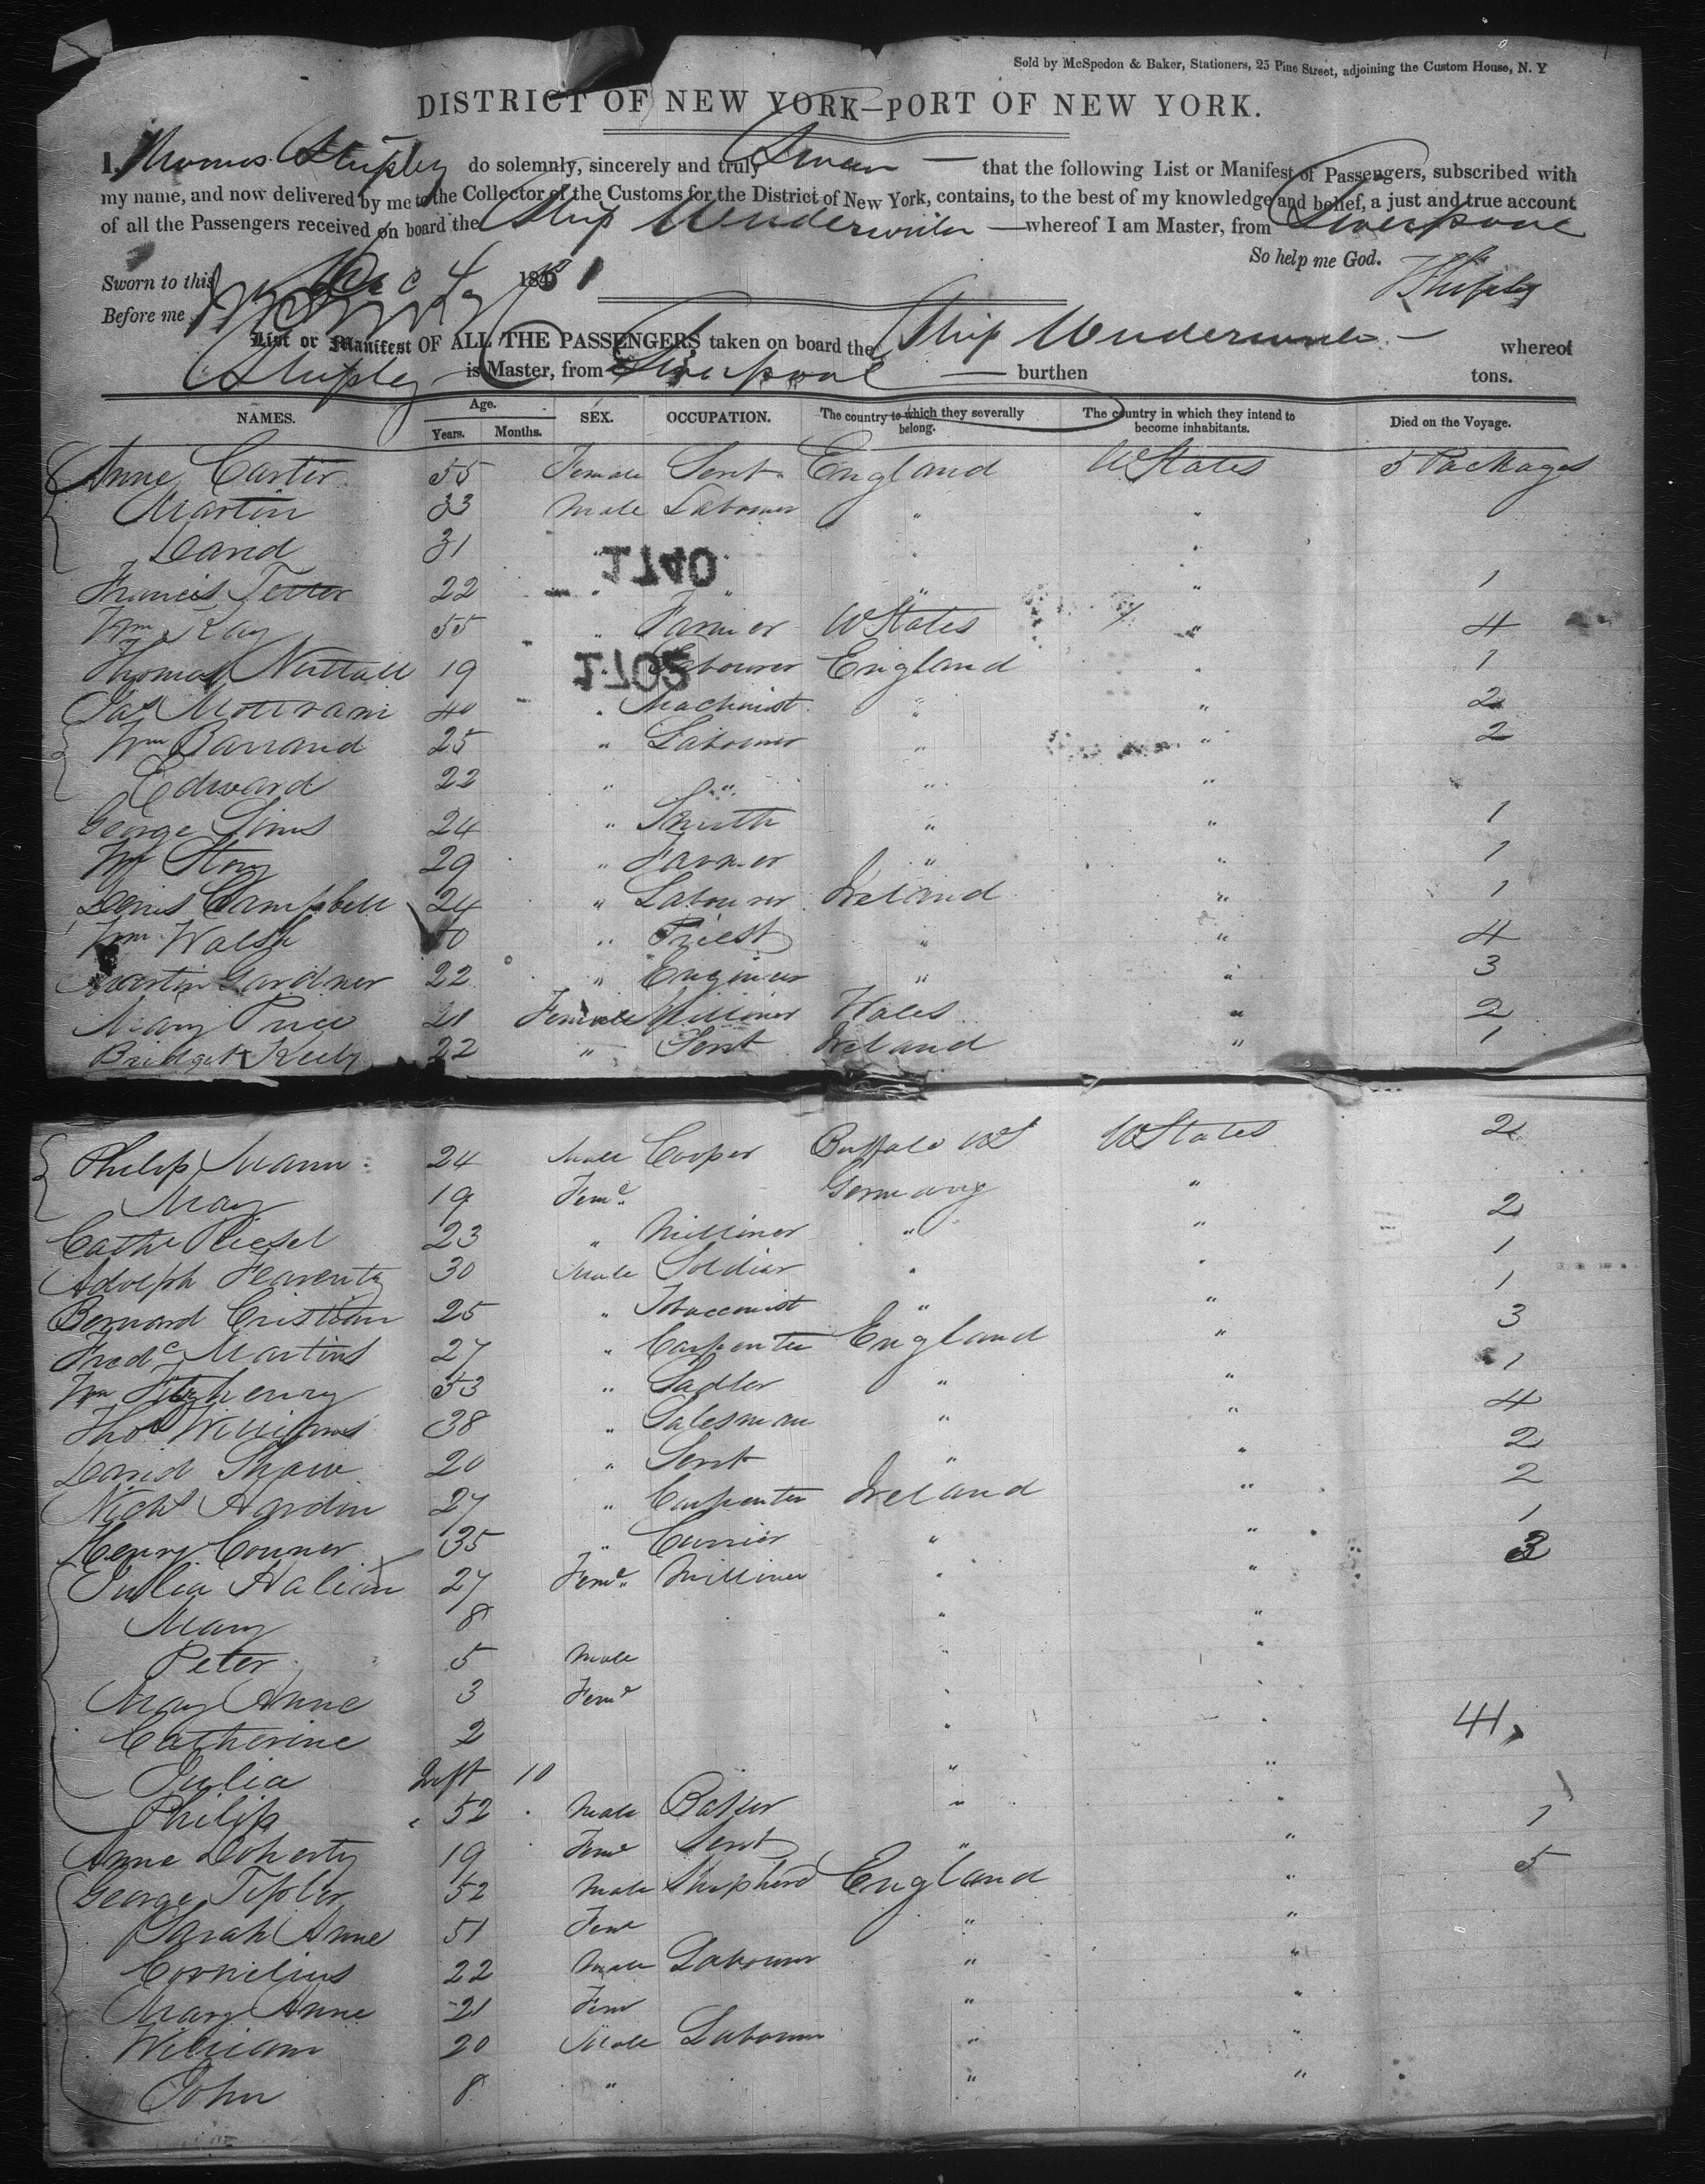 Sold by McSpedon & Baker, Stationers, 25 Pine Street, adjoining the Custom House, N. Y
DISTRICT OF NEW YORK—PORT OF NEW YORK.
I, Thomas Shipley do solemnly, sincerely and truly Swear — that the following List or Manifest of Passengers, subscribed with
my name, and now delivered by me to the Collector of the Customs for the District of New York, contains, to the best of my knowledge and belief, a just and true account
of all the Passengers received on board the Ship — whereof I am Master, from Liverpool
So help me God.
Sworn to this Dec 4 1851 T Shipley
Before me
List or Manifest OF ALL THE PASSENGERS taken on board the Ship — whereof
Shipley is Master, from Liverpool — burthen tons.
NAMES. Age. SEX. OCCUPATION. The country to which they severally belong. The country in which they intend to become inhabitants. Died on the Voyage.
Years. Months.
Anne Carter 55 Female Servt England U States 5 Packages
Martin 33 Male Labourer " "
David 31 " " "
1740
Francis Tetter 22 " " " " 1
Wm Kay 55 " Farmer U States " 4
Thomas Nuttall 19 Labourer England " 1
1702
Jas Mottram 40 " Machinist " " 2
Wm Barrand 25 " Labourer " " 2
Edward 22 " " " "
George Sims 24 " Smith " " 1
Wm Story 29 " Farmer " " 1
Denis Campbell 24 " Labourer Ireland " 1
Wm Walsh 50 " Priest " " 4
Martin Gardner 22 " Engineer " " 3
Mary Price 21 Female Milliner Wales " 2
Bridget Keely 22 " Servt Ireland " 1
Philip Mann 24 Male Cooper Buffalo US U States 2
May 19 Feme Germany "
Cathe Riesel 23 " Milliner " " 2
Adolph 30 Male Soldier " " 1
Bernard Cristian 25 " Tobacconist " " 1
Fredc Martins 27 " Carpenter England " 3
Wm Fitzhenry 53 " Sadler " " 1
Thos Williams 38 " Salesman " " 4
David Shaw 20 " Servt " " 2
Nichs Hardin 27 " Carpenter Ireland " 2
Henry Conner 35 " Currier " " 1
Julia Halion 27 Feme Milliner " " 3
Mary 8 " "
Peter 5 Male " "
May Anne 3 Feme " "
Catherine 2 " " 41
Julia Inft 10 " "
Philip 52 Male Baker " "
Anne Doherty 19 Feme Servt " " 1
George Tipler 52 Male Shepherd England " 5
Sarah Anne 51 Feme " "
Cornelius 22 Male Labourer " "
Mary Anne 21 Feme " "
William 20 Male Labourer " "
John 8 " " "